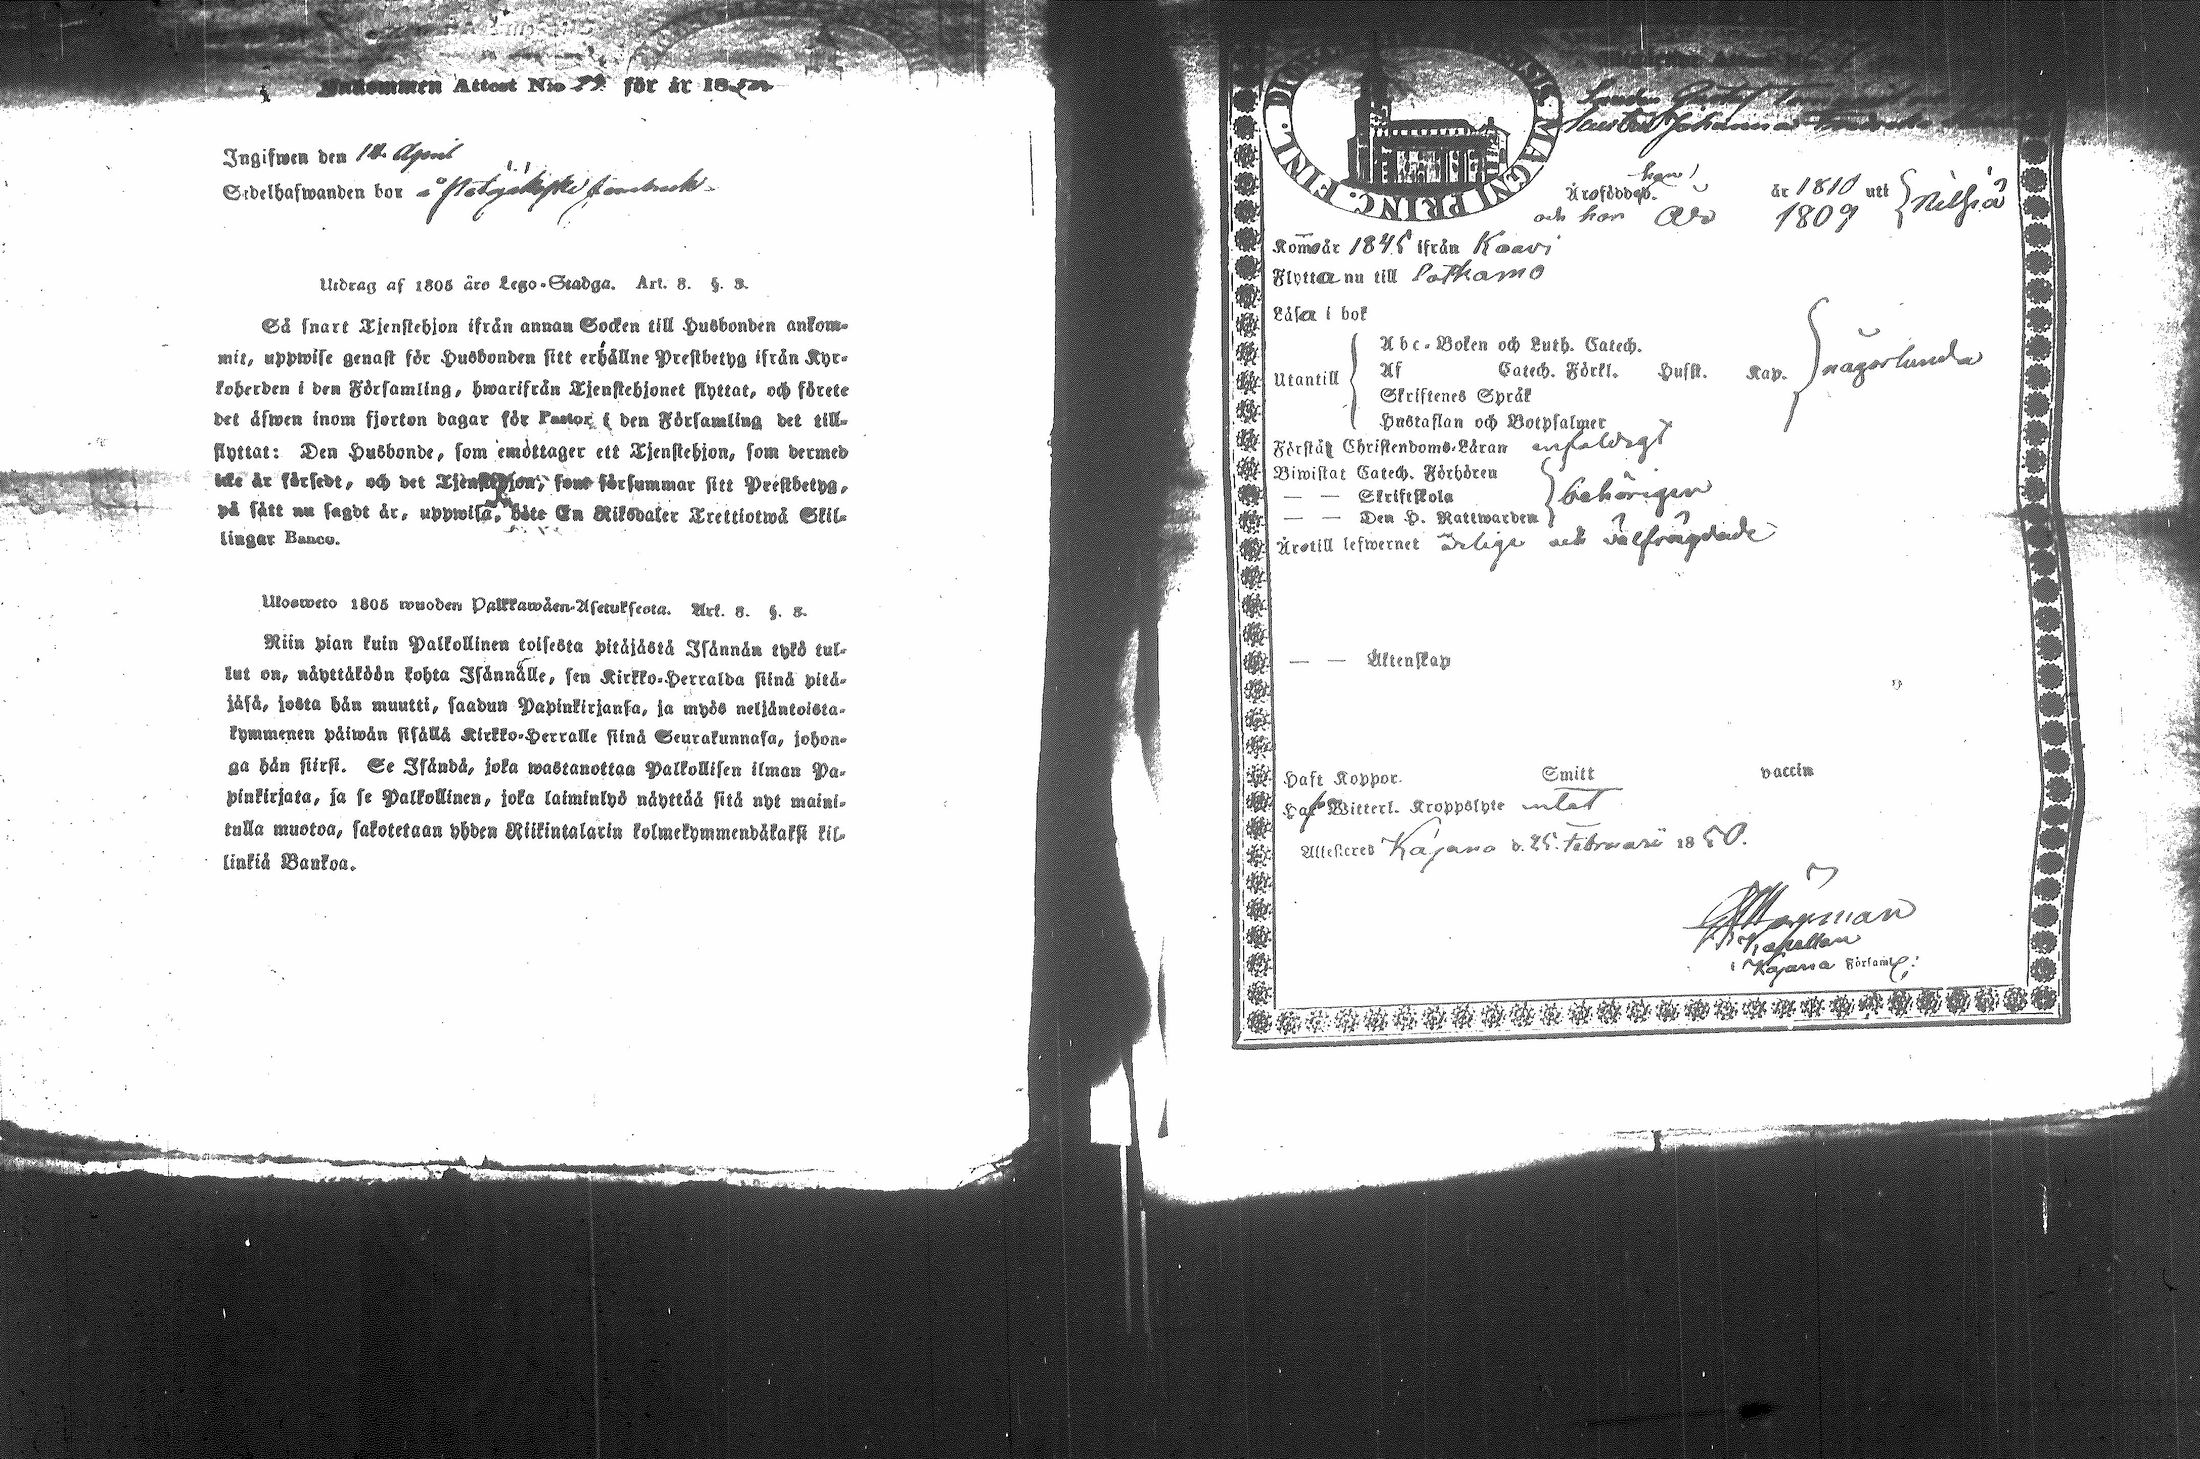 Inkommen Attest N:o 99 för år 1850
Ingifwen den 10 April
Sedelhafwanden bor å
Utdrag af 1805 års Lego-Stadga. Art. 8. §. 3.
Så snart Tjenstehjon ifrån annan Socken till Husbonden ankom-
mit, uppwise genast för Husbonden sitt erhållne Prestbetyg ifrån Kyr-
koherden i den Församling, hwarifrån Tjenstehjonet flyttat, och förete
det åfwen inom fjorton dagar för Pastor i den Församling det till-
flyttat: Den Husbonde, som emottager ett Tjenstehjon, som dermed
icke är försedt, och det Tjenstehjon, som försummar sitt Prestbetyg,
på sått nu sagdt år, uppwisa, böte En Riksdaler Trettiotwå Skil-
lingar Banco.
Ulosweto 1805 wuoden Palkkawåen-Asetuksesta. Art. 8. §. 3.
Niin pian kuin Palkollinen toisesta pitåjåstå Isånnån tykö tul-
lut on, nåyttåköön kohta Isånnålle, sen Kirkko-Herralda siinå pitå-
jåså, josta hån muutti, saadun Papinkirjansa, ja myös neljåntoista-
kymmenen påiwån sisållå Kirkko-Herralle siinå Seurakunnasa, johon-
ga hån siirsi. Se Isåndå, joka wastanottaa Palkollisen ilman Pa-
pinkirjata, ja se Palkollinen, joka laiminlyö nåyttåå sitå nyt maini-
tulla muotoa, sakotetaan yhden Riikintalarin kolmekymmendåkaksi kil-
linkiå Bankoa.
MAGNI PRINC. FINL.
Gustaf
hustru Johanna
han
Äro födde år 1810 utt Nilsiä
och hon 1809
Kommo år 1845 ifrån Kaavi
Flytta nu till Sotkamo
Läsa i bok
Utantill
Abc-Boken och Luth. Catech.
Af Catech. Förkl. Husft. Kap.
Skriftenes Språk
Hustaflan och Botpsalmer
någorlunda
Förstå Christendoms-Låran enfaldigt
Biwistat Catech. Förhören
— — Skriftskola
— — Den H. Nattwarden
behörigen
Äro till lefwernet ärlige och välfrägdade
— — Äktenskap
Haft Koppor. Smitt vaccin
Haf Witterl. Kroppslyte intet
Attesteres Kajana d. 25 Februari 1850.
Kapellan
i Kajana Församl: